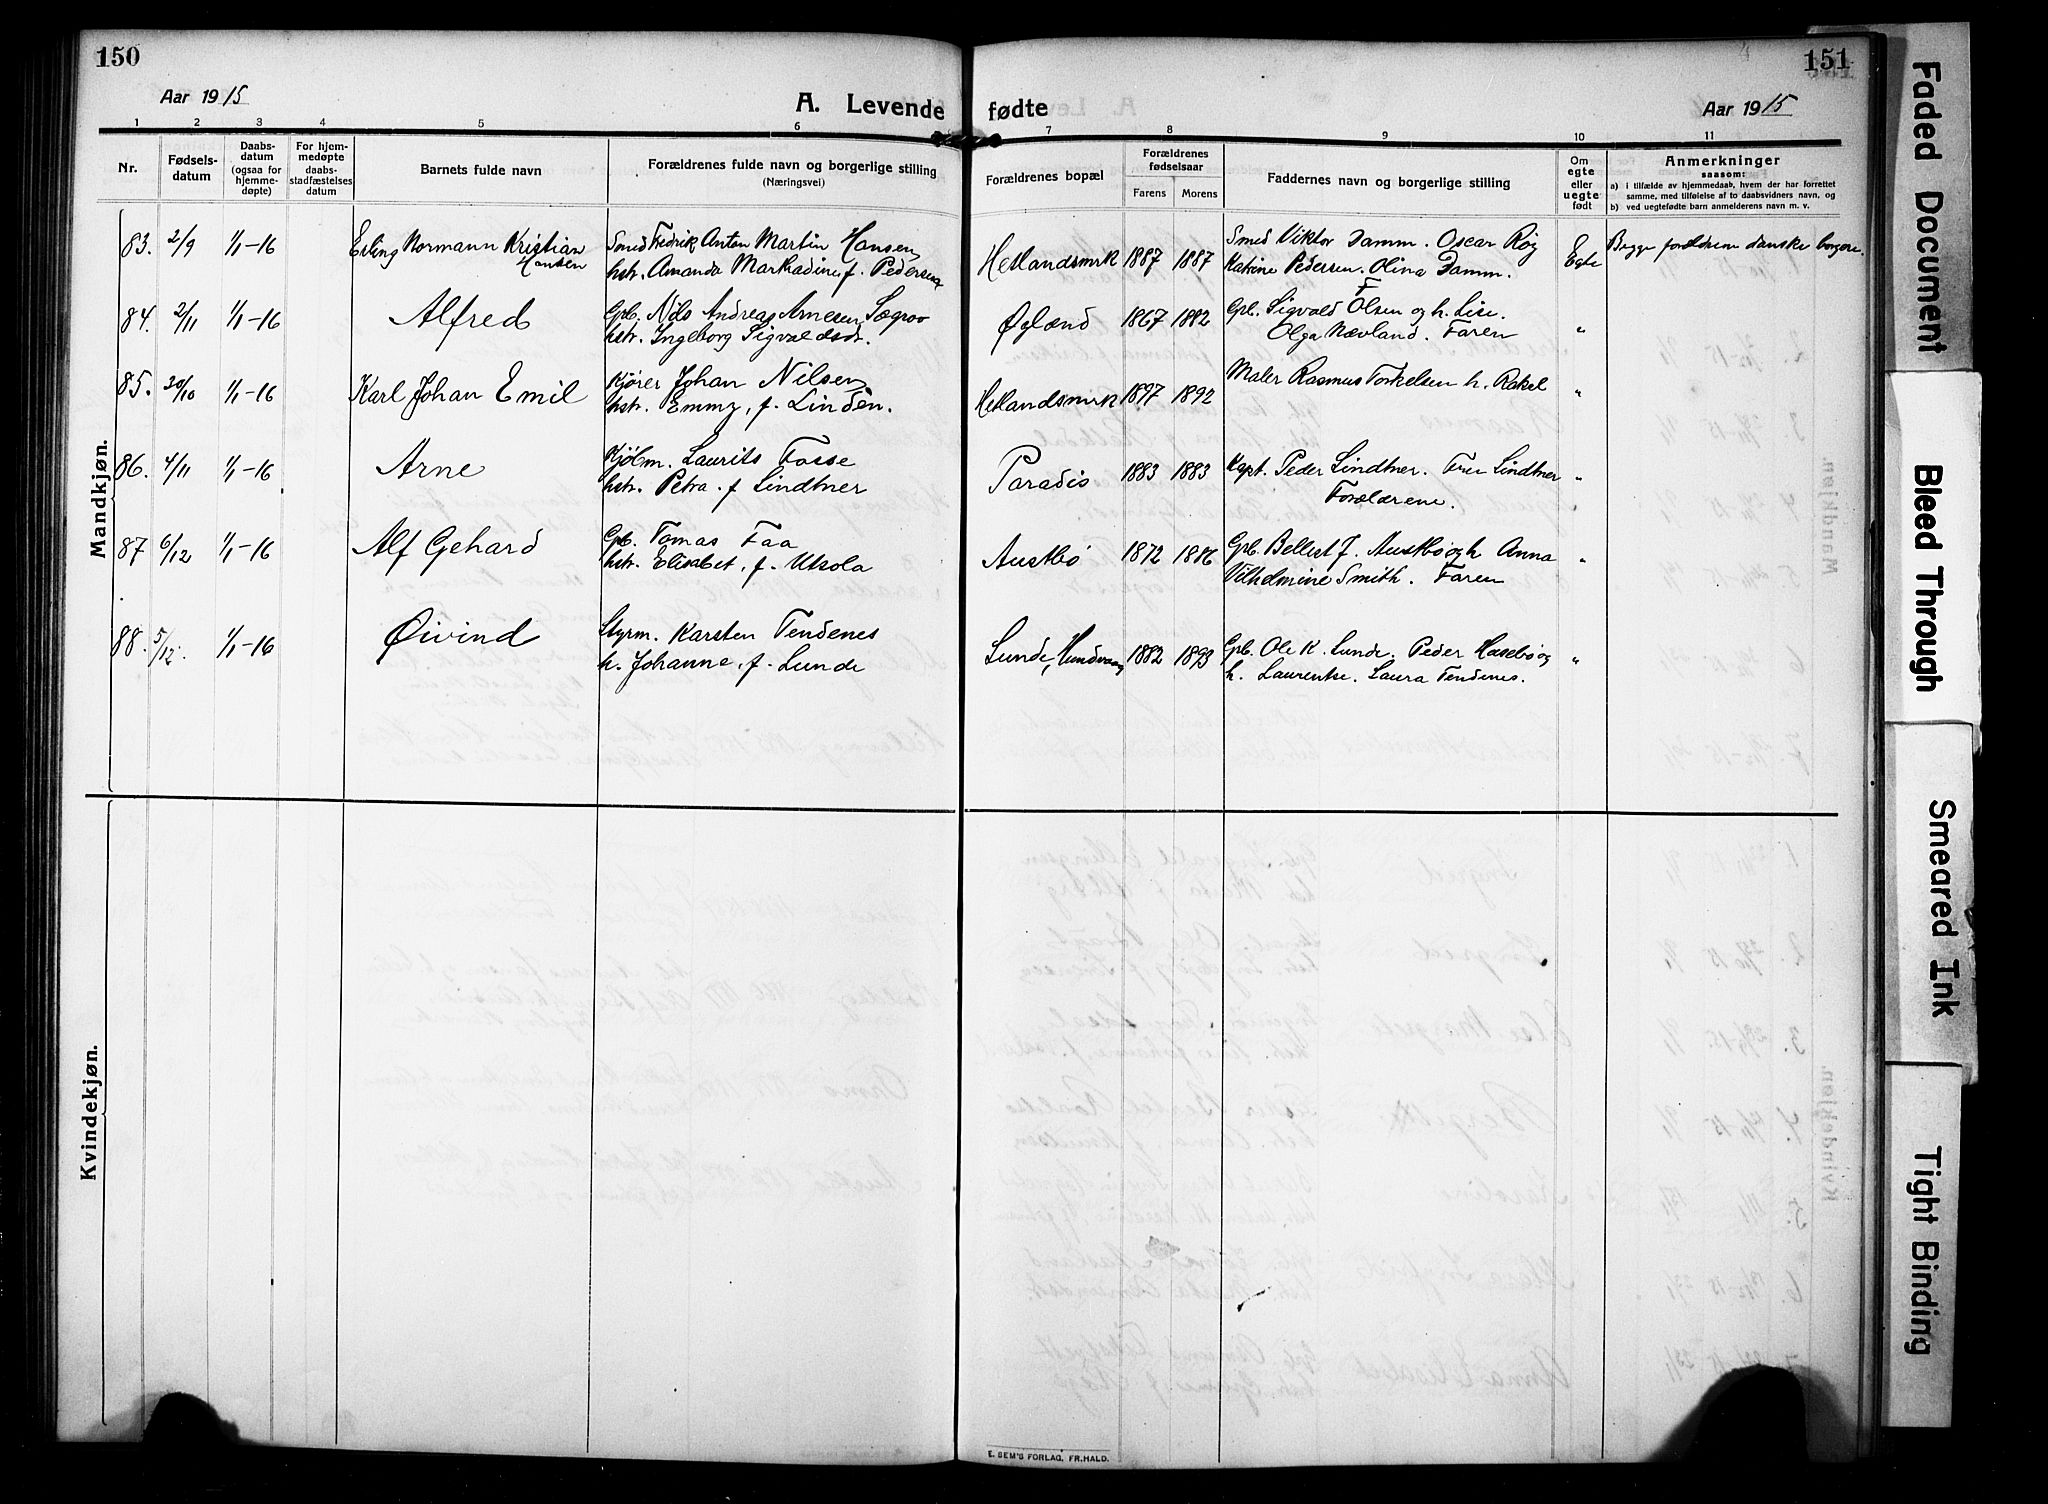 150
151
Aar 1915
A. Levende
fødte
Aar 1915
1 2 3 4 5 6 7 8 9 10 11
Nr.
Fødsels-
datum
Daabs-
datum
(ogsaa for
hjemme-
døpte)
For hjem-
medøpte
daabs-
stadfæstelses
datum
Barnets fulde navn
Forældrenes fulde navn og borgerlige stilling
(Næringsvei)
Forældrenes bopæl
Forældrenes
fødselsaar
Farens Morens
Faddernes navn og borgerlige stilling
Om
egte
eller
uegte
født
Anmerkninger
saasom:
a) i tilfælde av hjemmedaab, hvem der har forrettet
samme, med tilføielse af to daabsvidners navn, og
b) ved uegtefødte barn anmelderens navn m. v.
Mandkjøn.
83. 2/9 1/1-16 Erling Normann Kristian Smed Fredrik Anton Martin Hansen Hetlandsmrk 1887 1887 Smed Viktor Damm. Oscar Røg Egte Begge forældrene danske borgere.
Hansen hstr. Amanda f. Pedersen Katrine Pedersen. Olina Damm.
84. 2/11 1/1-16 Alfred Gpb. Nils Andreas Arnesen Øglænd 1867 1882 Gpb. Sigvald F Olsen og h. Lise. "
hstr. Ingeborg Sigvaldsdr. Olga Nævland. Faren
85. 30/10 1/1-16 Karl Johan Emil Kjører Johan Nilsen Hetlandsmrk 1897 1892 Maler Rasmus Torkelsen h. Rakel "
hstr. Emmy, f. Lindèn.
86. 4/11 1/1-16 Arne Kjøbm. Laurits Fosse Paradis 1883 1883 Kapt. Peder Lindtner. Fru Lindtner "
hstr. Petra. f Lindtner Forældrene.
87 6/12 1/1-16 Alf Gehard Gpb. Tomas Faa Austbø 1872 1886 Gpb. Bellest J. Austbø og h Anna "
hstr. Elisabet, f. Utsola Vilhelmine Smith. Faren
88. 5/12. 1/1-16 Øivind Styrm. Karsten Tendenes Lunde, Hundvaag 1882 1893 Gpb. Ole K. Lunde. Peder Husebø og "
h. Johanne, f. Lunde h. Laurentse. Laura Tendenes.
Kvindekjøn.
E. SEM'S FORLAG, FR.HALD.
Faded Document
Bleed Through
Smeared Ink
Tight Binding